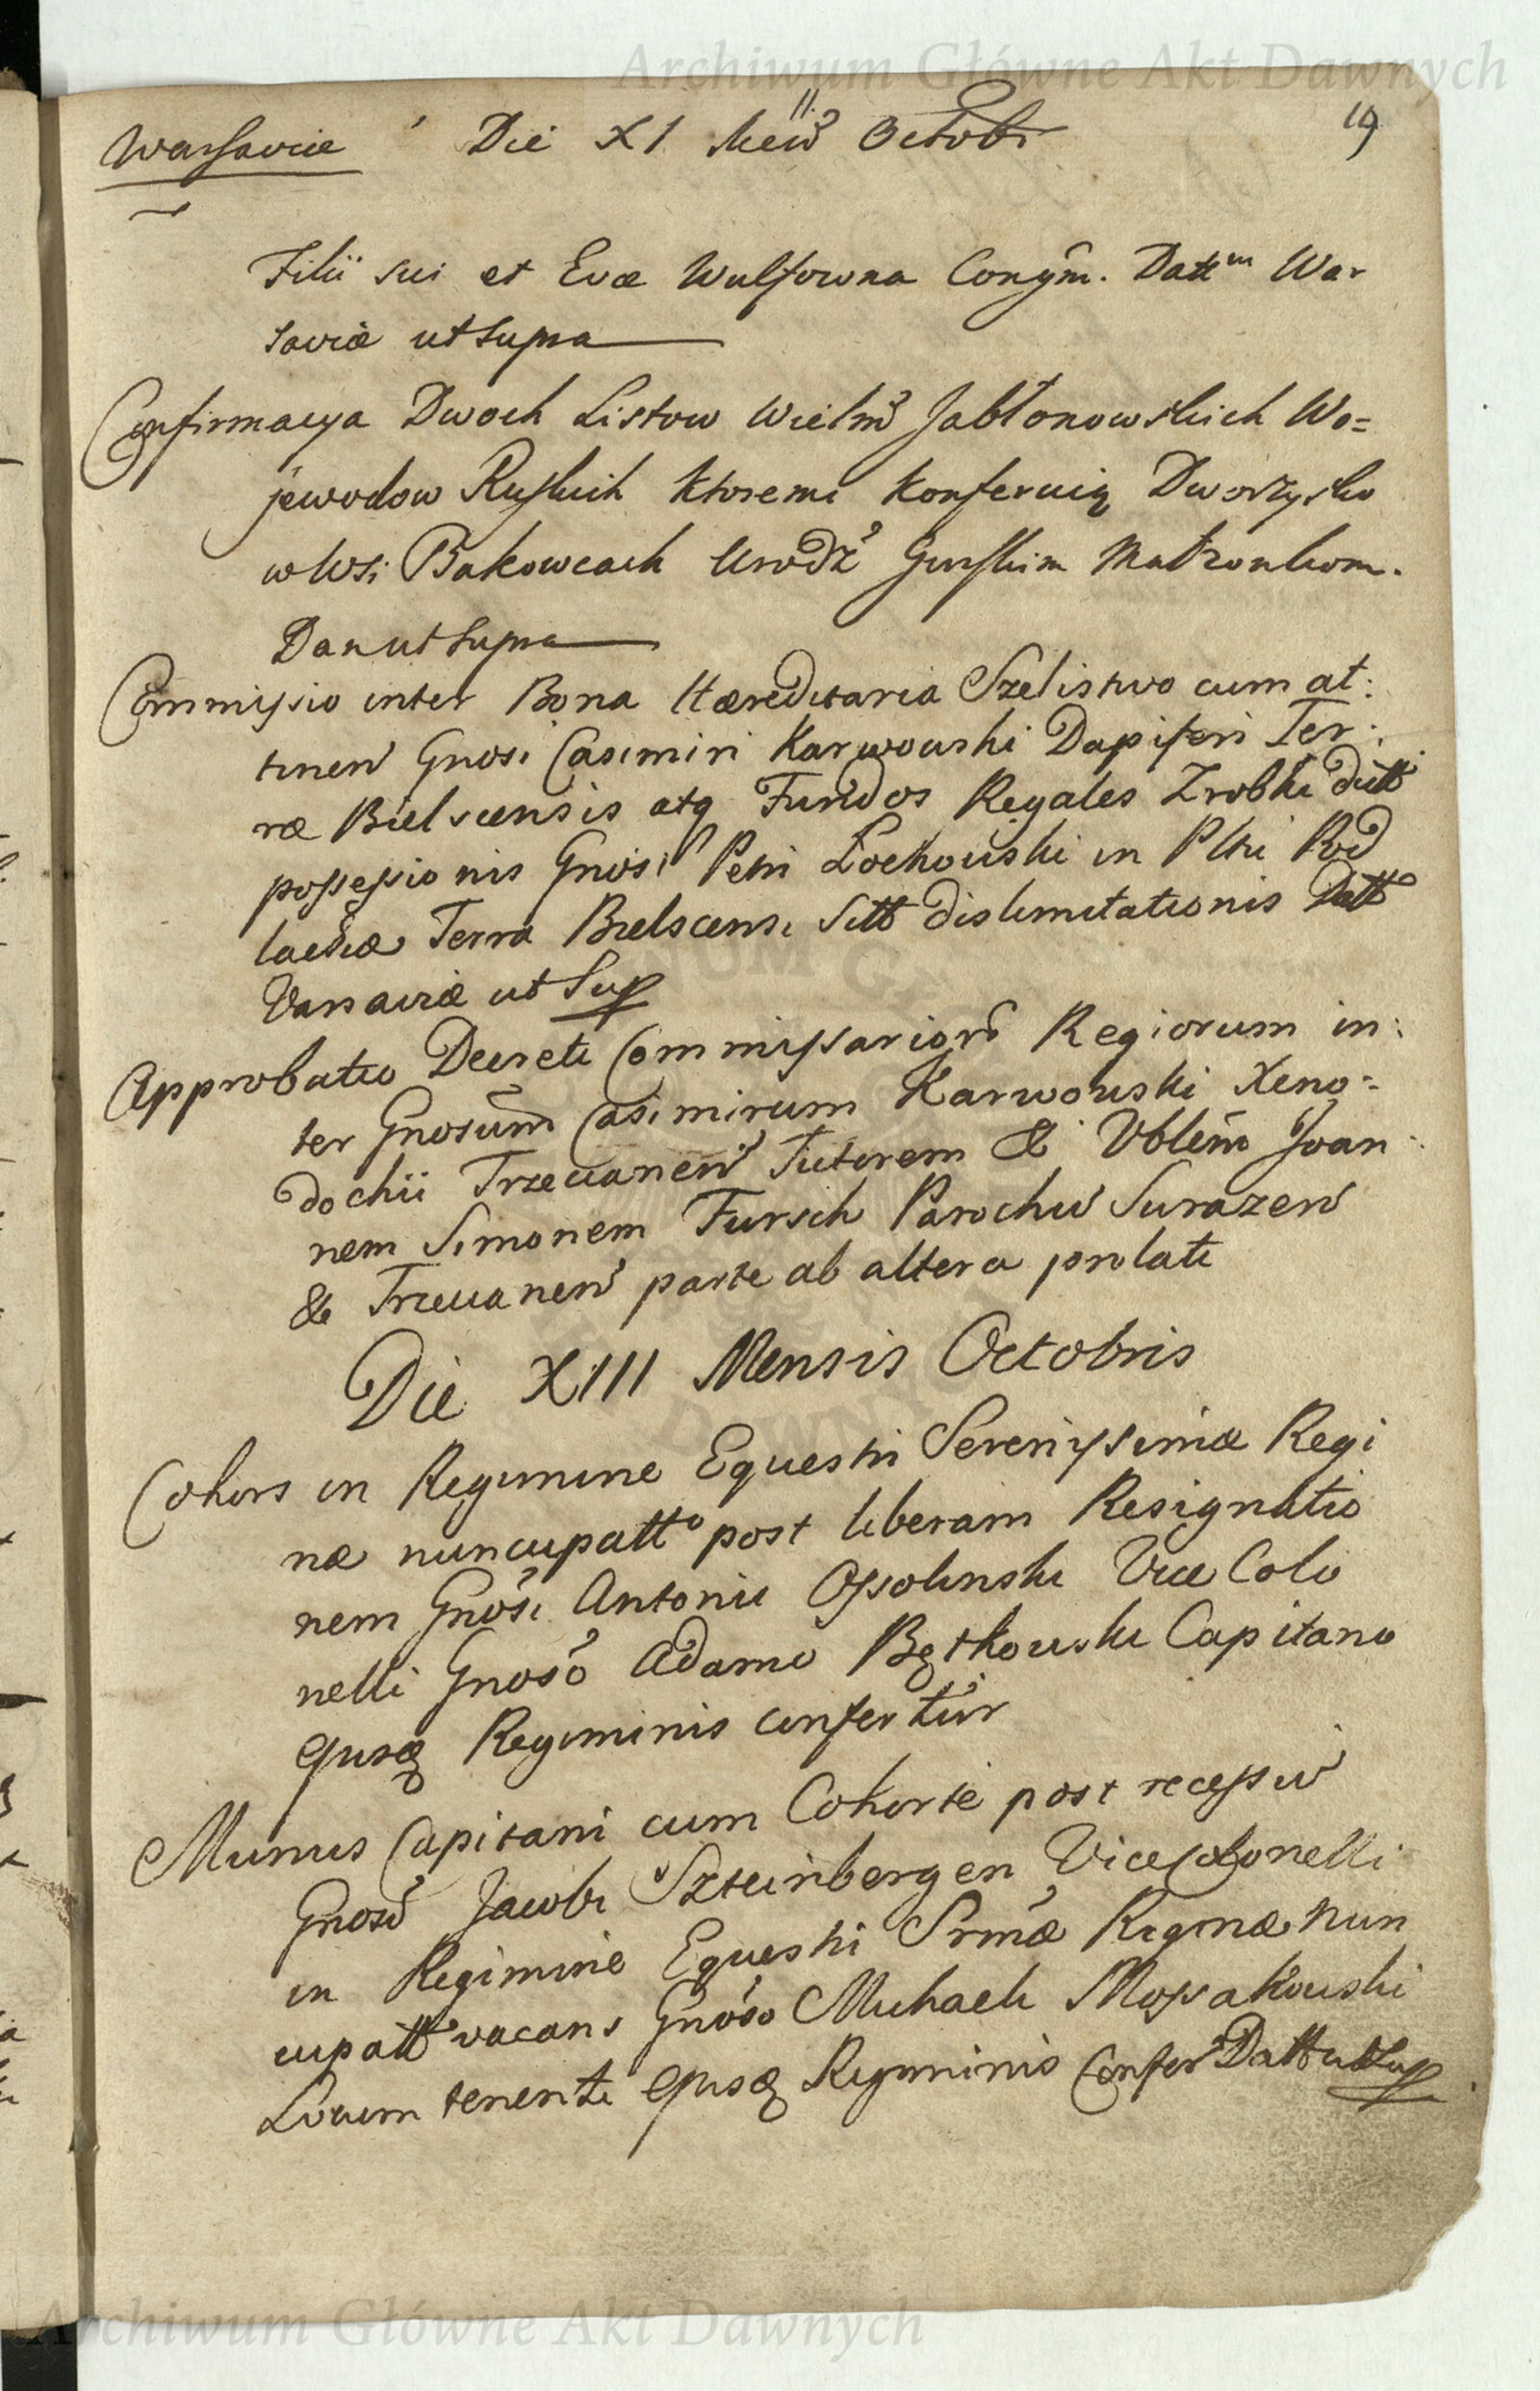 Archiwum Główne Akt Dawnych
Warsaviæ Die XI Meñs Octobr 19
11
Filii sui et Evæ Wulfowna Conjūm. Dattm War
saviæ ut supra
Confirmacya Dwoch Listow Wielm Jabłonowskich Wo=
jewodow Ruskich ktoremi konferuią Dworzysko
w Wsi Bakowcach Urodz Gurskim Małzonkom.
Dan ut supra
Commissio inter Bona Hæreditaria Szelistwo cum at:
tinen Gnosi Casimiri Karwowski Dapiferi Ter:
ræ Bielscensis atq Fundos Regales Zrobki dict
possessionis Gnosi Petri Łochowski in Pltu Pod
lachiæ Terra Bielscensi sitt dislimitationis Datt
Varsaviæ ut Sup
Approbatio Decreti Commissarior Regiorum in:
ter Gnosum Casimirum Karwowski Xeno=
dochii Trzcianen Tutorem & Vblem Joan
nem Simonem Fursch Parochū Surazen
& Trzcianen parte ab altera prolati
Die XIII Mensis Octobris
Cohors in Regimine Equestri Serenissimæ Regi
næ nuncupatto post liberam Resignatio
nem Gnosi Antonii Ossolinski Vice Colo
nelli Gnoso Adamo Bętkowski Capitano
ejusq Regiminis confertur
Munus Capitani cum Cohorte post recessū
Gnosi Jacobi Szteinbergen Vicecolonelli
in Regimine Equestri Srmæ Reginæ nun
cupatt vacans Gnoso Michaeli Mossakowski
Locum tenenti ejusq Regiminis Confer Datt ut Sup
Archiwum Główne Akt Dawnych